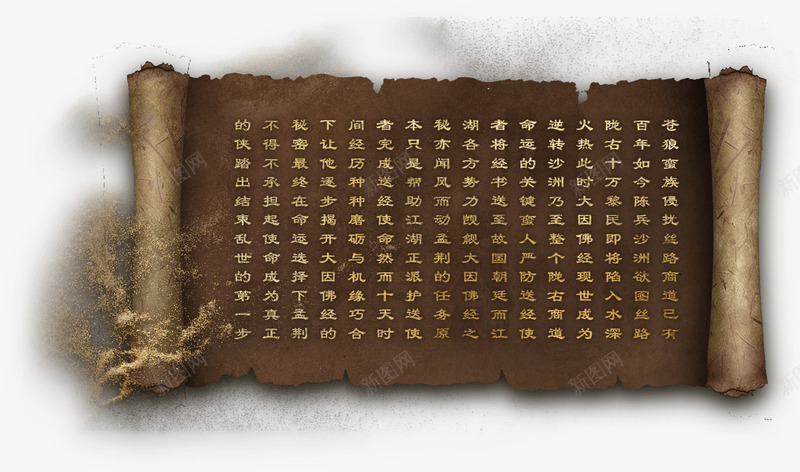 苍狼蛮族侵扰丝路商道已有
百年如今陈兵沙洲欲图丝路
陇右十万黎民即将陷入水深
火热此时大因佛经现世成为
逆转沙洲乃至整个陇右商道
命运的关键蛮人严防送经使
者将经书送至故国朝廷而江
湖各方势力觊觎大因佛经之
秘亦闻风而动孟荆的任务原
本只是帮助江湖正派护送使
者完成送经使命然而十天时
间经历种种磨砺与机缘巧合
下让他逐步揭开大因佛经的
秘密最终在命运选择下孟荆
不得不承担起使命成为真正
的侠踏出结束乱世的第一步
新图网
新图网
新图网
新图网